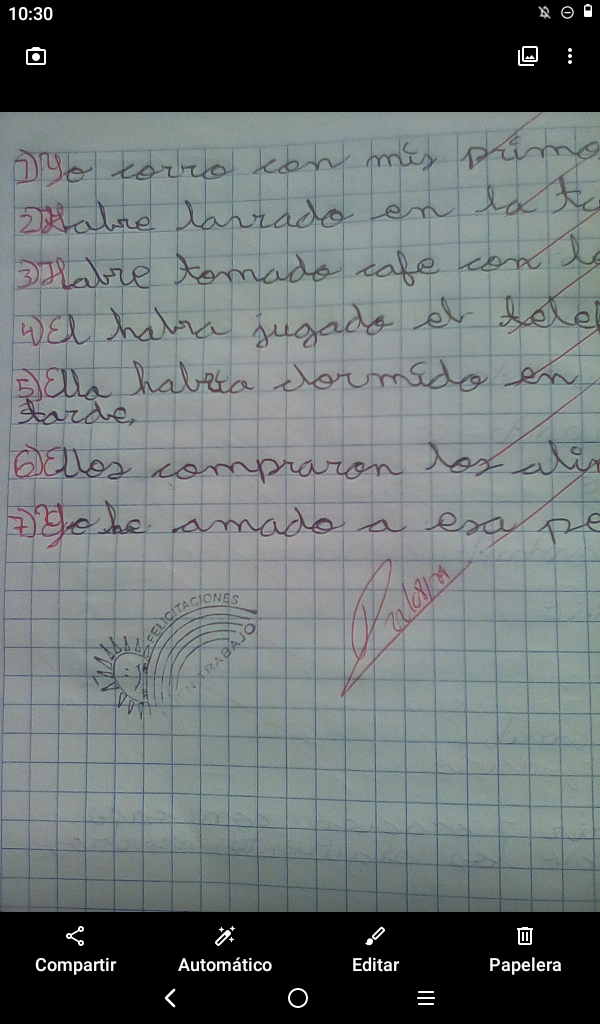 10:30
1) Yo corro con mis primo
2) Habre lavrado en la ta
3) Habre tomado cafe con la
4) El habra jugado el telef
5) Ella habria dormido en
tarde.
6) Ellos compraron los alim
7) Yo he amado a esa pe
FELICITACIONES
TRABAJO
Compartir Automático Editar Papelera